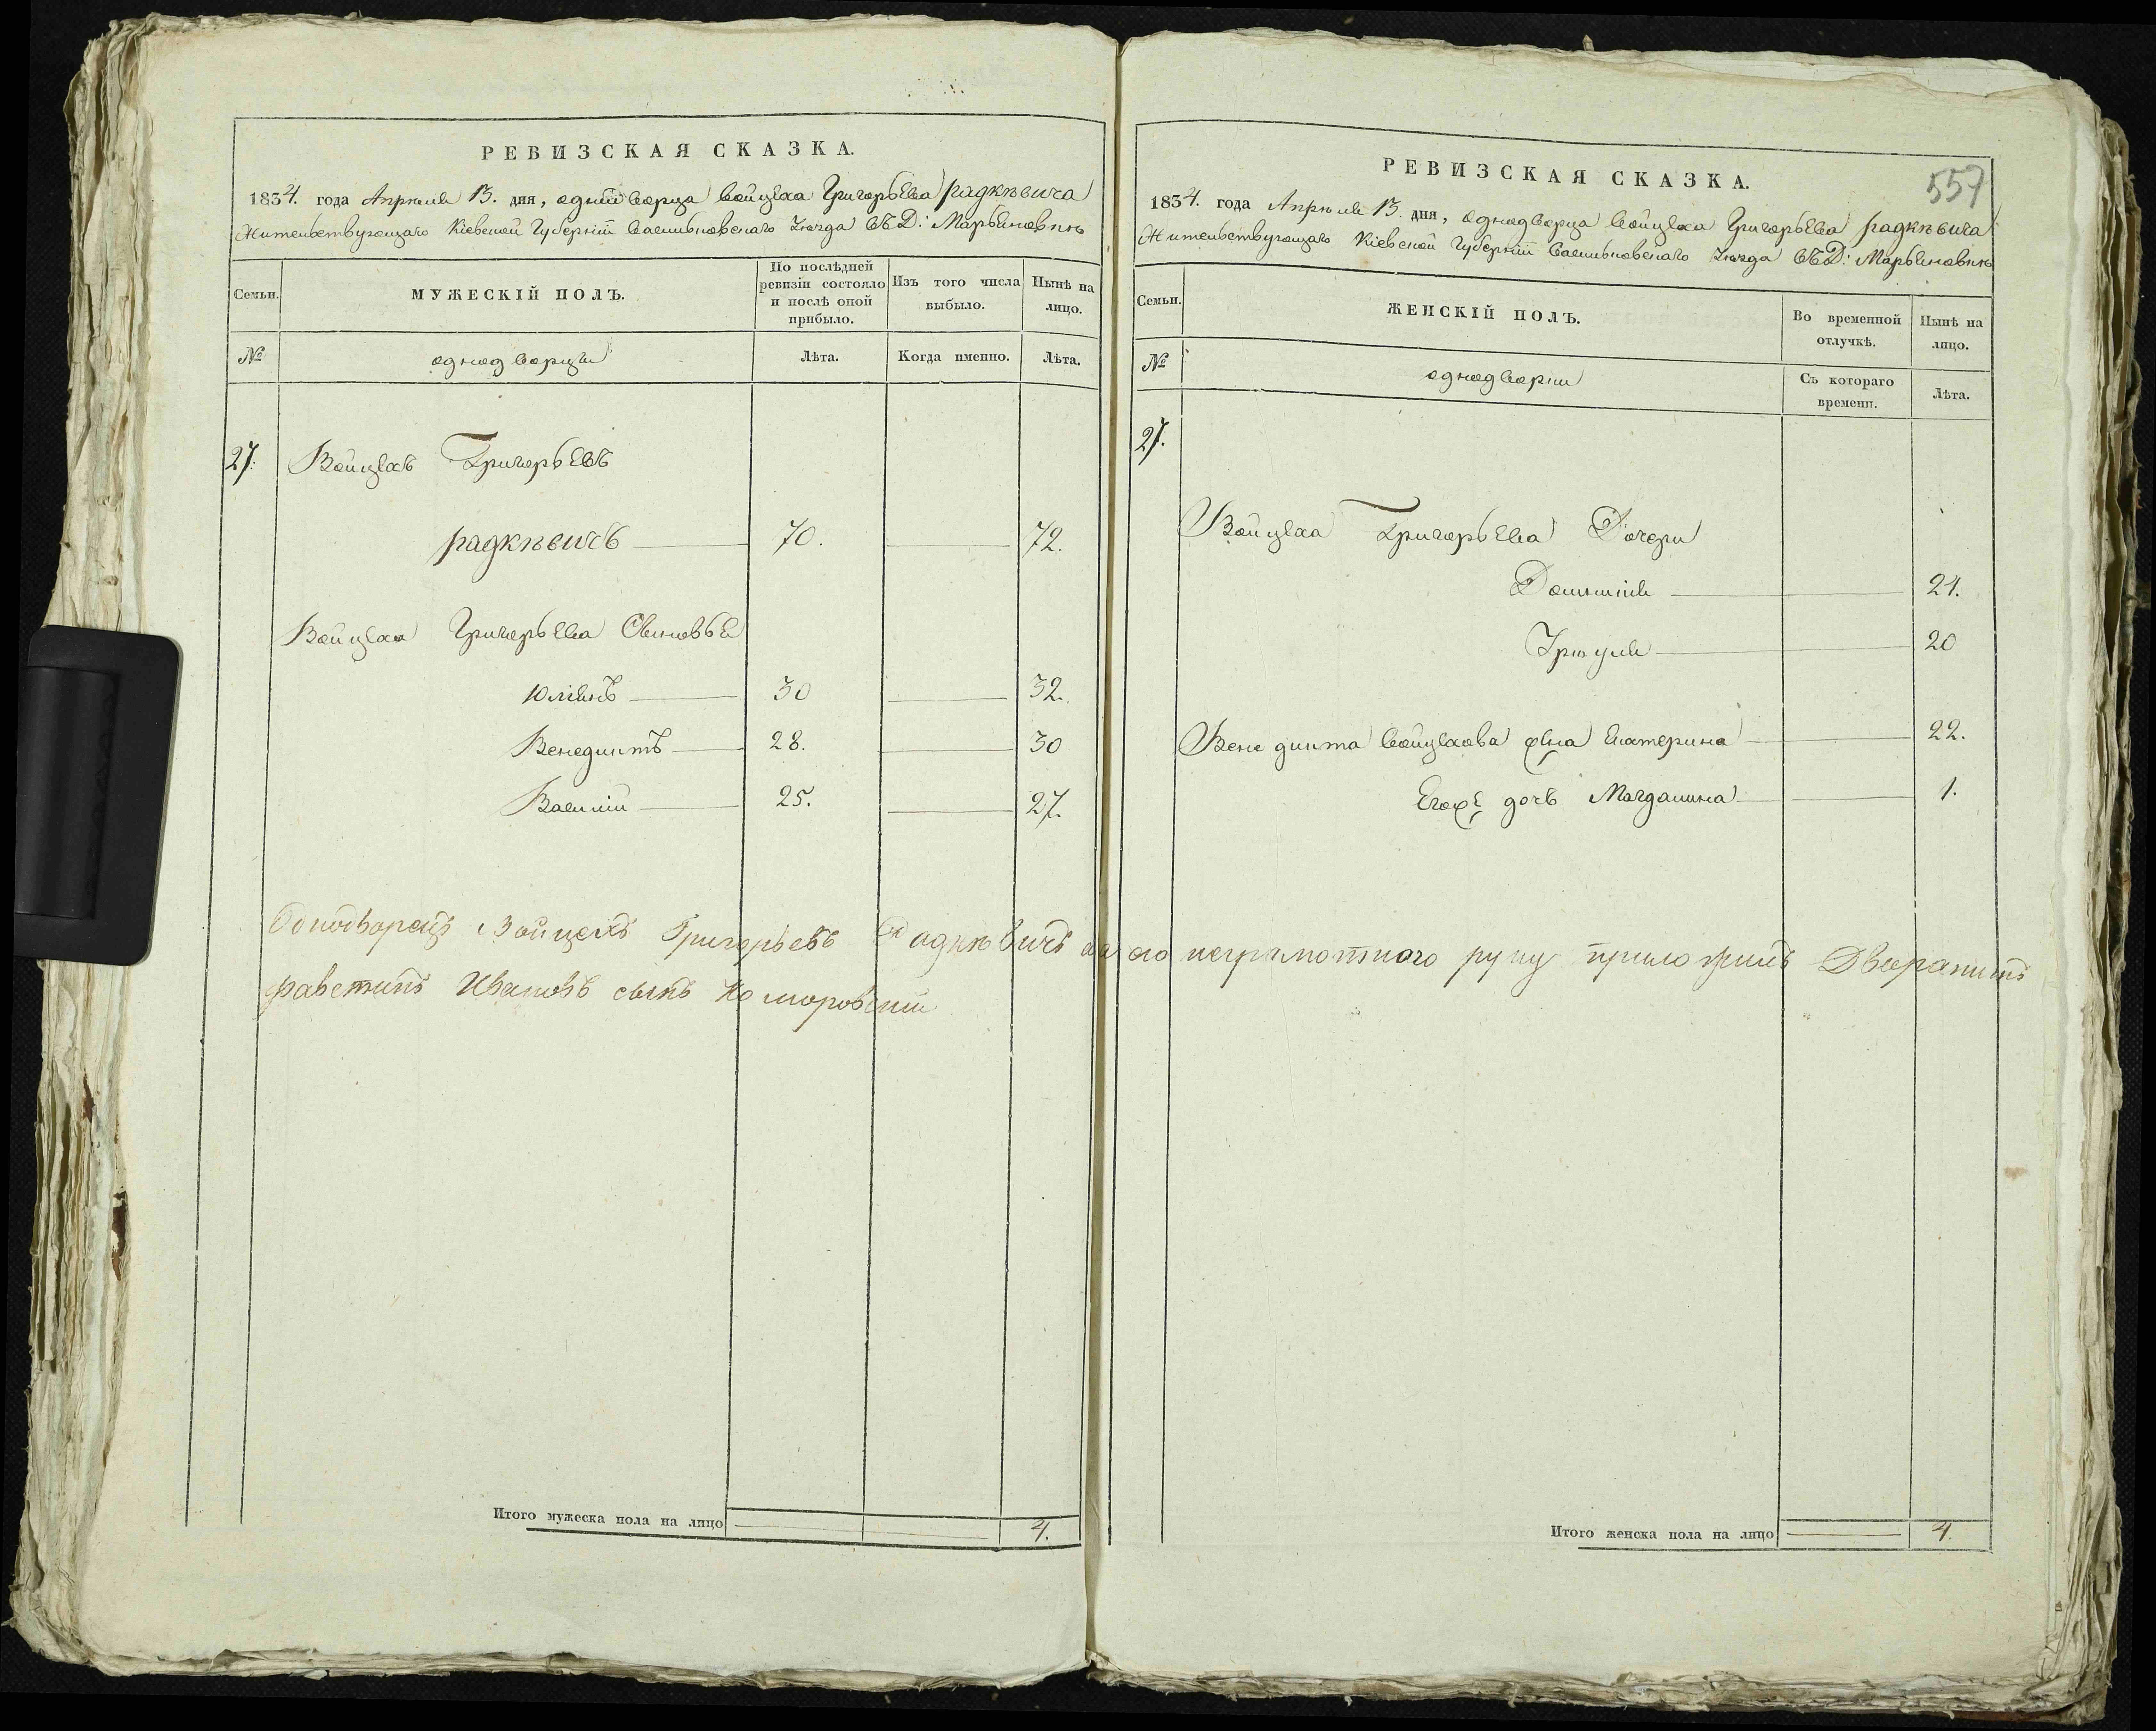 РЕВИЗСКАЯ СКАЗКА.
1834. года Апрѣля 13. дня, однодворца Войцеха Григорьева радкѣвича
Жительствующаго Кіевской Губерніи Васильковскаго уѣзда въ Д: Марьяновкѣ
Семьи.
МУЖЕСКІЙ ПОЛЪ.
По послѣдней ревизіи состояло и послѣ оной прибыло.
Изъ того числа выбыло.
Нынѣ на лицо.
№
однодворцы
Лѣта.
Когда именно.
Лѣта.
27. Войцехъ Григорьевъ
радкѣвичъ 70. 72.
Войцеха Григорьева Сыновья
Юліянъ 30 32.
Венедиктъ 28. 30
Василій 25. 27.
Однодворецъ Войцехъ Григорьевъ Радкѣвичъ а за его неграмотного руку приложилъ Дворанинъ
фавстинъ Ивановъ сынъ Коморовскій
Итого мужеска пола на лицо 4.
557
РЕВИЗСКАЯ СКАЗКА.
1834. года Апрѣля 13. дня, однодворца Войцеха Григорьева радкѣвича
Жительствующаго Кіевской Губерніи Васильковскаго уѣзда въ Д: Марьяновкѣ
Семьи.
ЖЕНСКІЙ ПОЛЪ.
Во временной отлучкѣ.
Нынѣ на лицо.
№
однодворки
Съ котораго времени.
Лѣта.
27.
Войцеха Григорьева Дочери
24.
20
Венедикта Войцехова жена Екатерина 22.
Егоже дочь Магдалина 1.
Итого женска пола на лицо 4.